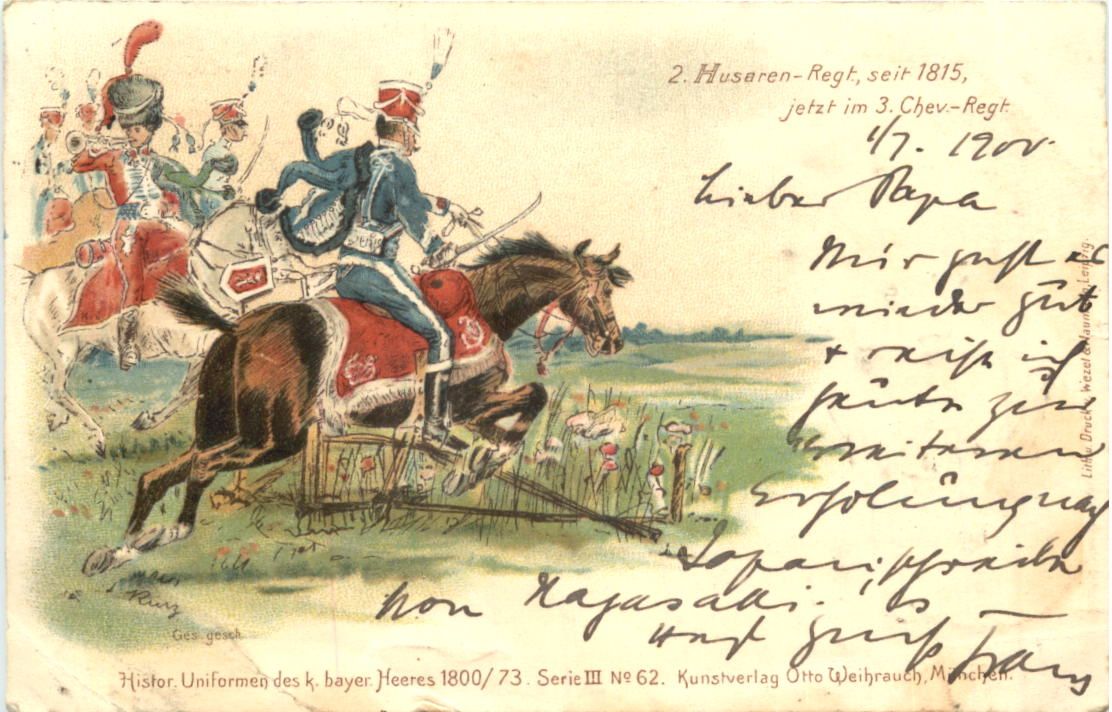 2. Husaren-Regt., seit 1815,
jetzt im 3. Chev.-Regt.
1/7. 1900.
Lieber Papa
Mir geht es
wieder gut
+ reise ich
heute zur
weiteren
Erholung nach
Japan. schreibe
von Nagasaki.
Gruß Franz
Lith. u. Druck v. Wezel & Naumann, Leipzig.
Ring
Ges. gesch.
Histor. Uniformen des k. bayer. Heeres 1800/73. Serie III No 62. Kunstverlag Otto Weihrauch, München.